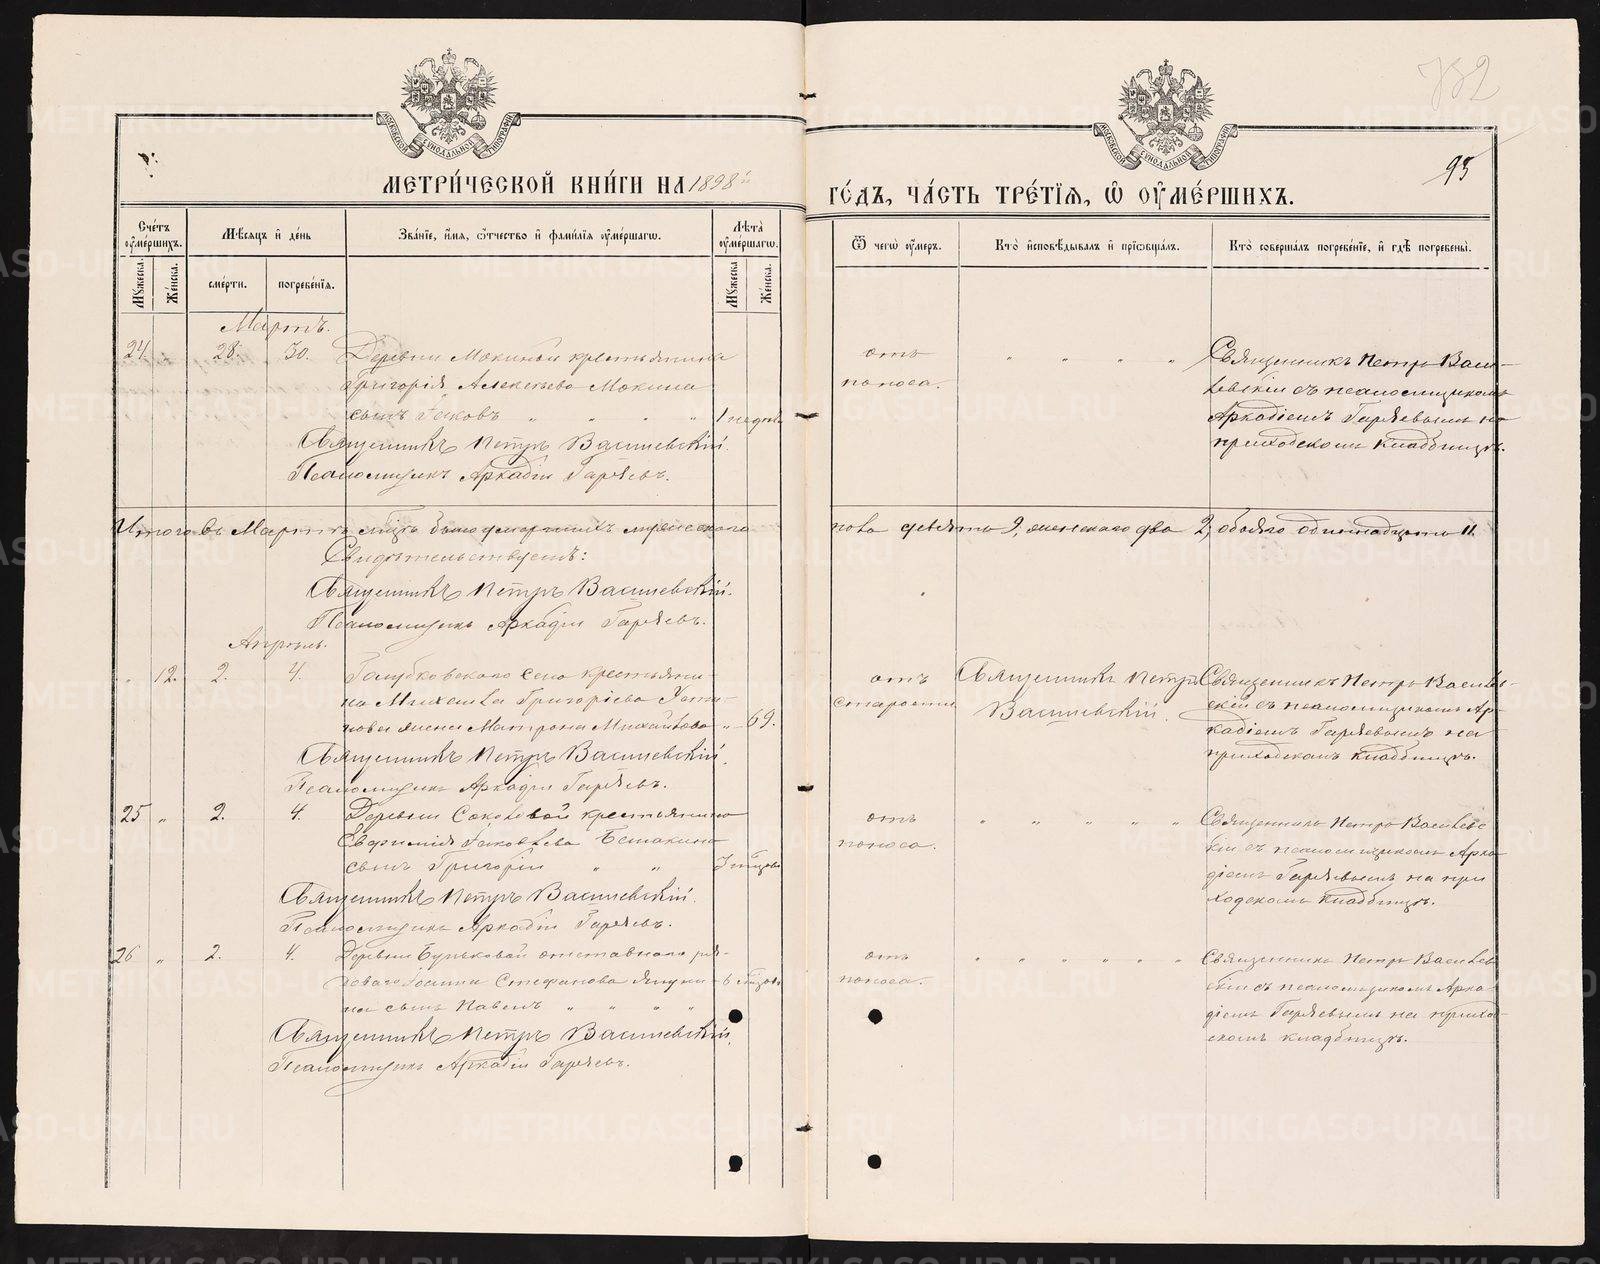 МЕТРИ́ЧЕСКОЙ КНИ́ГИ НА 1898й
ГО́ДЪ, ЧА́СТЬ ТРЕ́ТІѦ, Ѽ ОУ҆МЕ́РШИХЪ.
95
Сче́тъ оу҆ме́ршихъ.
Мѣсѧцъ и҆ де́нь
Зва́нїе, и҆́мѧ, ѻ҆́тчество и҆ фами́лїѧ оу҆ме́ршагѡ.
Лѣ́та оу҆ме́ршагѡ.
Ѿ чегѡ̀ оу҆́меръ.
Кто̀ и҆сповѣ́дывалъ и҆ прїѡбща́лъ.
Кто̀ соверша́лъ погребе́нїе, и҆ гдѣ̀ погребены̀.
Му́жеска.
Же́нска.
сме́рти.
погребе́нїѧ.
Му́жеска
Же́нска.
Мартъ.
24 28. 30. Деревни Мокиной крестьянина
Григорія Алексѣева Мокина
сынъ Іаковъ " " " "
1 недѣл.
Священникъ Петръ Василевскій.
Псаломщикъ Аркадій Гаряевъ.
отъ
поноса.
" " " "
Священникъ Петръ Васи-
левскій съ псаломщикомъ
Аркадіемъ Гаряевымъ на
приходскомъ кладбищѣ.
Итого въ Мартѣ мѣсяцѣ было умершихъ мужескаго
пола девять 9, женскаго два 2, обоего одиннадцать 11.
Свидѣтельствуемъ:
Священникъ Петръ Василевскій.
Псаломщикъ Аркадій Гаряевъ.
Апрѣль.
" 12. 2. 4. Голубковскаго села крестьяни-
на Михаила Григоріева
жена Матрона Михайлова " 69.
Священникъ Петръ Василевскій.
Псаломщикъ Аркадій Гаряевъ.
отъ
старости
Священникъ Петръ
Василевскій.
Священникъ Петръ Василев-
скій съ псаломщикомъ Ар-
кадіемъ Гаряевымъ на
приходскомъ кладбищѣ.
25 " 2. 4. Деревни Соколовой крестьянина
Евфимія Іаковлева
сынъ Григорій " "
Священникъ Петръ Василевскій.
Псаломщикъ Аркадій Гаряевъ.
отъ
поноса.
" " " " "
Священникъ Петръ Василевс
кій съ псаломщикомъ Арка
діемъ Гаряевымъ на при
ходскомъ кладбищѣ.
26 " 2. 4. Деревни Бучковой отставнаго ря-
доваго Іоанна Стефанова
на сынъ Павелъ " " " "
Священникъ Петръ Василевскій.
Псаломщикъ Аркадій Гаряевъ.
отъ
поноса.
" " " " " "
Священникъ Петръ Василев
скій съ псаломщикомъ Арка
діемъ Гаряевымъ на приход-
скомъ кладбищѣ.
METRIKI.GASO-URAL.RU